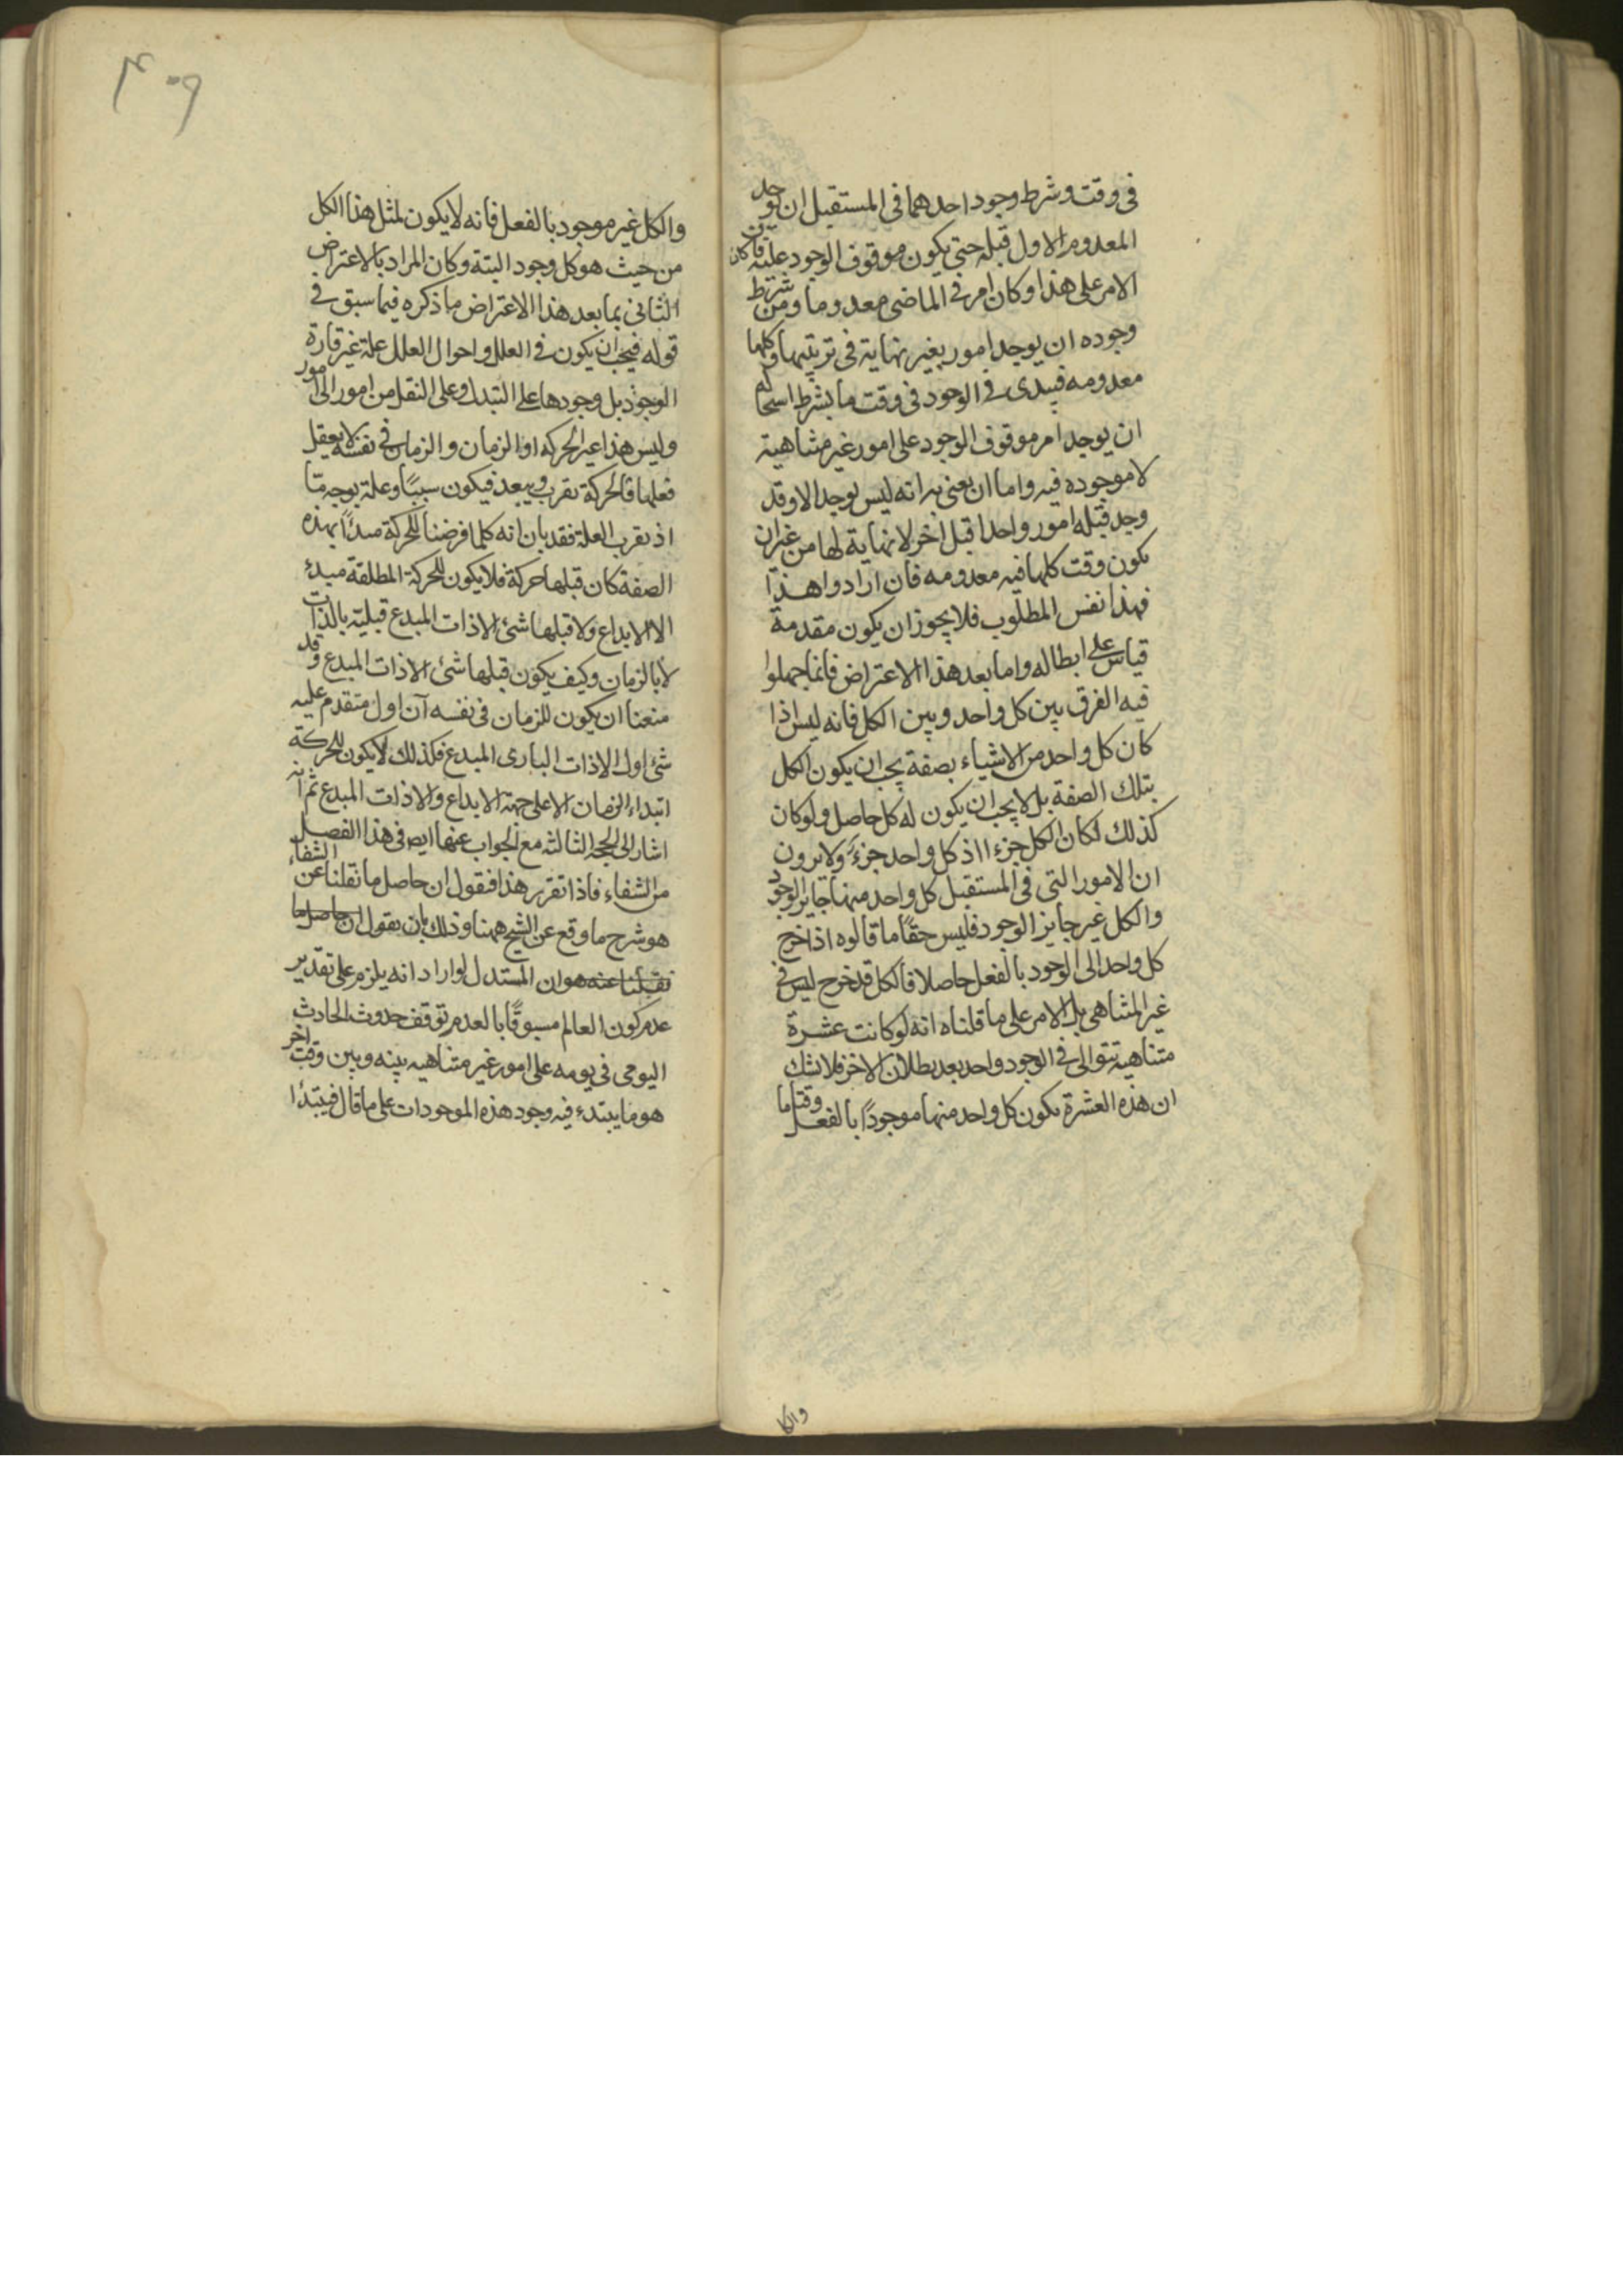 فى وقت وشرط وجود احدهما فى المستقبل ان يوجد
المعدوم الاول قبله حتى يكون موقوف الوجود عليه فان كان
الامر على هذا وكان امر فى الماضى معدوما ومن شرط
وجوده ان يوجد امور بغير نهاية فى ترتيبها وكلها
معدومه فيبدى فى الوجود فى وقت ما بشرط استحاله
ان يوجد امر موقوف الوجود على امور غير متناهية
لا موجوده فيه واما ان يعنى به انه ليس يوجد الا وقد
وجد قبله امور واحدا قبل اخر لا نهاية لها من غير ان
يكون وقت كلها فيه معدومه فان ارادوا هذا
فهذا نفس المطلوب فلا يجوز ان يكون مقدمة
قياس على ابطاله واما بعد هذا الاعتراض فانما جهلوا
فيه الفرق بين كل واحد وبين الكل فانه ليس اذا
كان كل واحد من الاشياء بصفة يجب ان يكون الكل
بتلك الصفة بل لا يجب ان يكون له كل حاصل ولو كان
كذلك لكان الكل جزءا اذ كل واحد جزء ولا يرون
ان الامور التى فى المستقبل كل واحد منها جايز الوجود
والكل غير جايز الوجود فليس حقا ما قالوه اذا خرج
كل واحد الى الوجود بالفعل حاصلا فالكل قد خرج ليس فى
غير المتناهى بل الامر على ما قلناه انه لو كانت عشرة
متناهية تتوالى فى الوجود واحد بعد بطلان الاخر فلا شك
ان هذه العشرة يكون كل واحد منها موجودا بالفعل وقتا ما
والكل
٤٠٩
والكل غير موجود بالفعل فانه لا يكون لمثل هذا الكل
من حيث هو كل وجود البتة وكان المراد بالاعتراض
الثانى بما بعد هذا الاعتراض ما ذكره فيما سبق فى
قوله فيجب ان يكون فى العلل واحوال العلل علة غير قارة
الوجود بل وجودها على التبدل وعلى النقل من امور الى امور
وليس هذا غير الحركه او الزمان والزمان فى نفسه لا يعقل
فعلها فالحركة تقرب ويبعد فيكون سببا وعلة بوجه ما
اذ يقرب العلة فقد بان انه كلما فرضنا للحركة مبدأ بهذه
الصفة كان قبلها حركة فلا يكون للحركة المطلقة مبدئ
الا الابداع ولا قبلها شئ الا ذات المبدع قبلية بالذات
لا بالزمان وكيف يكون قبلها شئ الا ذات المبدع وقد
منعنا ان يكون للزمان فى نفسه آن اول متقدم عليه
شئ اول الا ذات البارى المبدع فكذلك لا يكون للحركة
ابتداء الزمان الا على جهة الابداع والا ذات المبدع ثم انه
اشار الى الحجة الثالثة مع الجواب عنها ايض فى هذا الفصل
من الشفاء فاذا تقرر هذا فنقول ان حاصل ما نقلنا عن الشفاء
هو شرح ما وقع عن الشيخ ههنا وذلك بان يقول ان حاصل ما
نقلنا عنه هو ان المستدل لو اراد انه يلزم على تقدير
عدم كون العالم مسبوقا بالعدم توقف حدوث الحادث
اليومى فى يومه على امور غير متناهيه بينه وبين وقت اخر
هو ما يبتدء فيه وجود هذه الموجودات على ما قال فيبتدأ